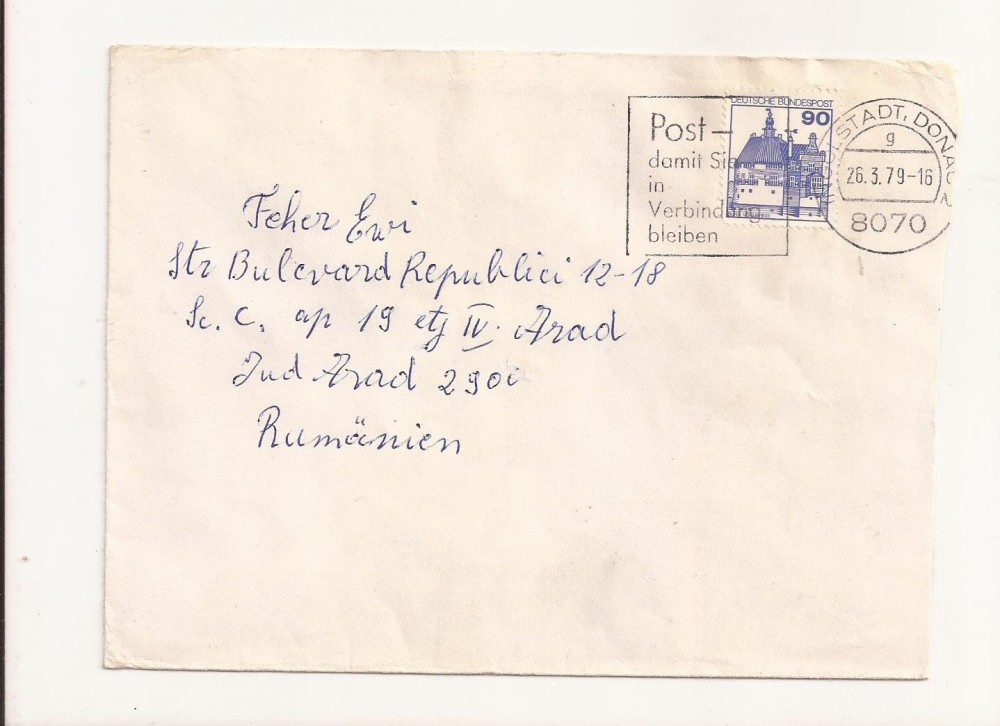 Post—
damit Sie
in
Verbindung
bleiben
DEUTSCHE BUNDESPOST
90
STADT, DONAU
g
26.3.79-16
8070
Feher Ewi
Str Bulevard Republici 12-18
Sc. C. ap 19 etj IV. Arad
Jud Arad 2900
Rumänien